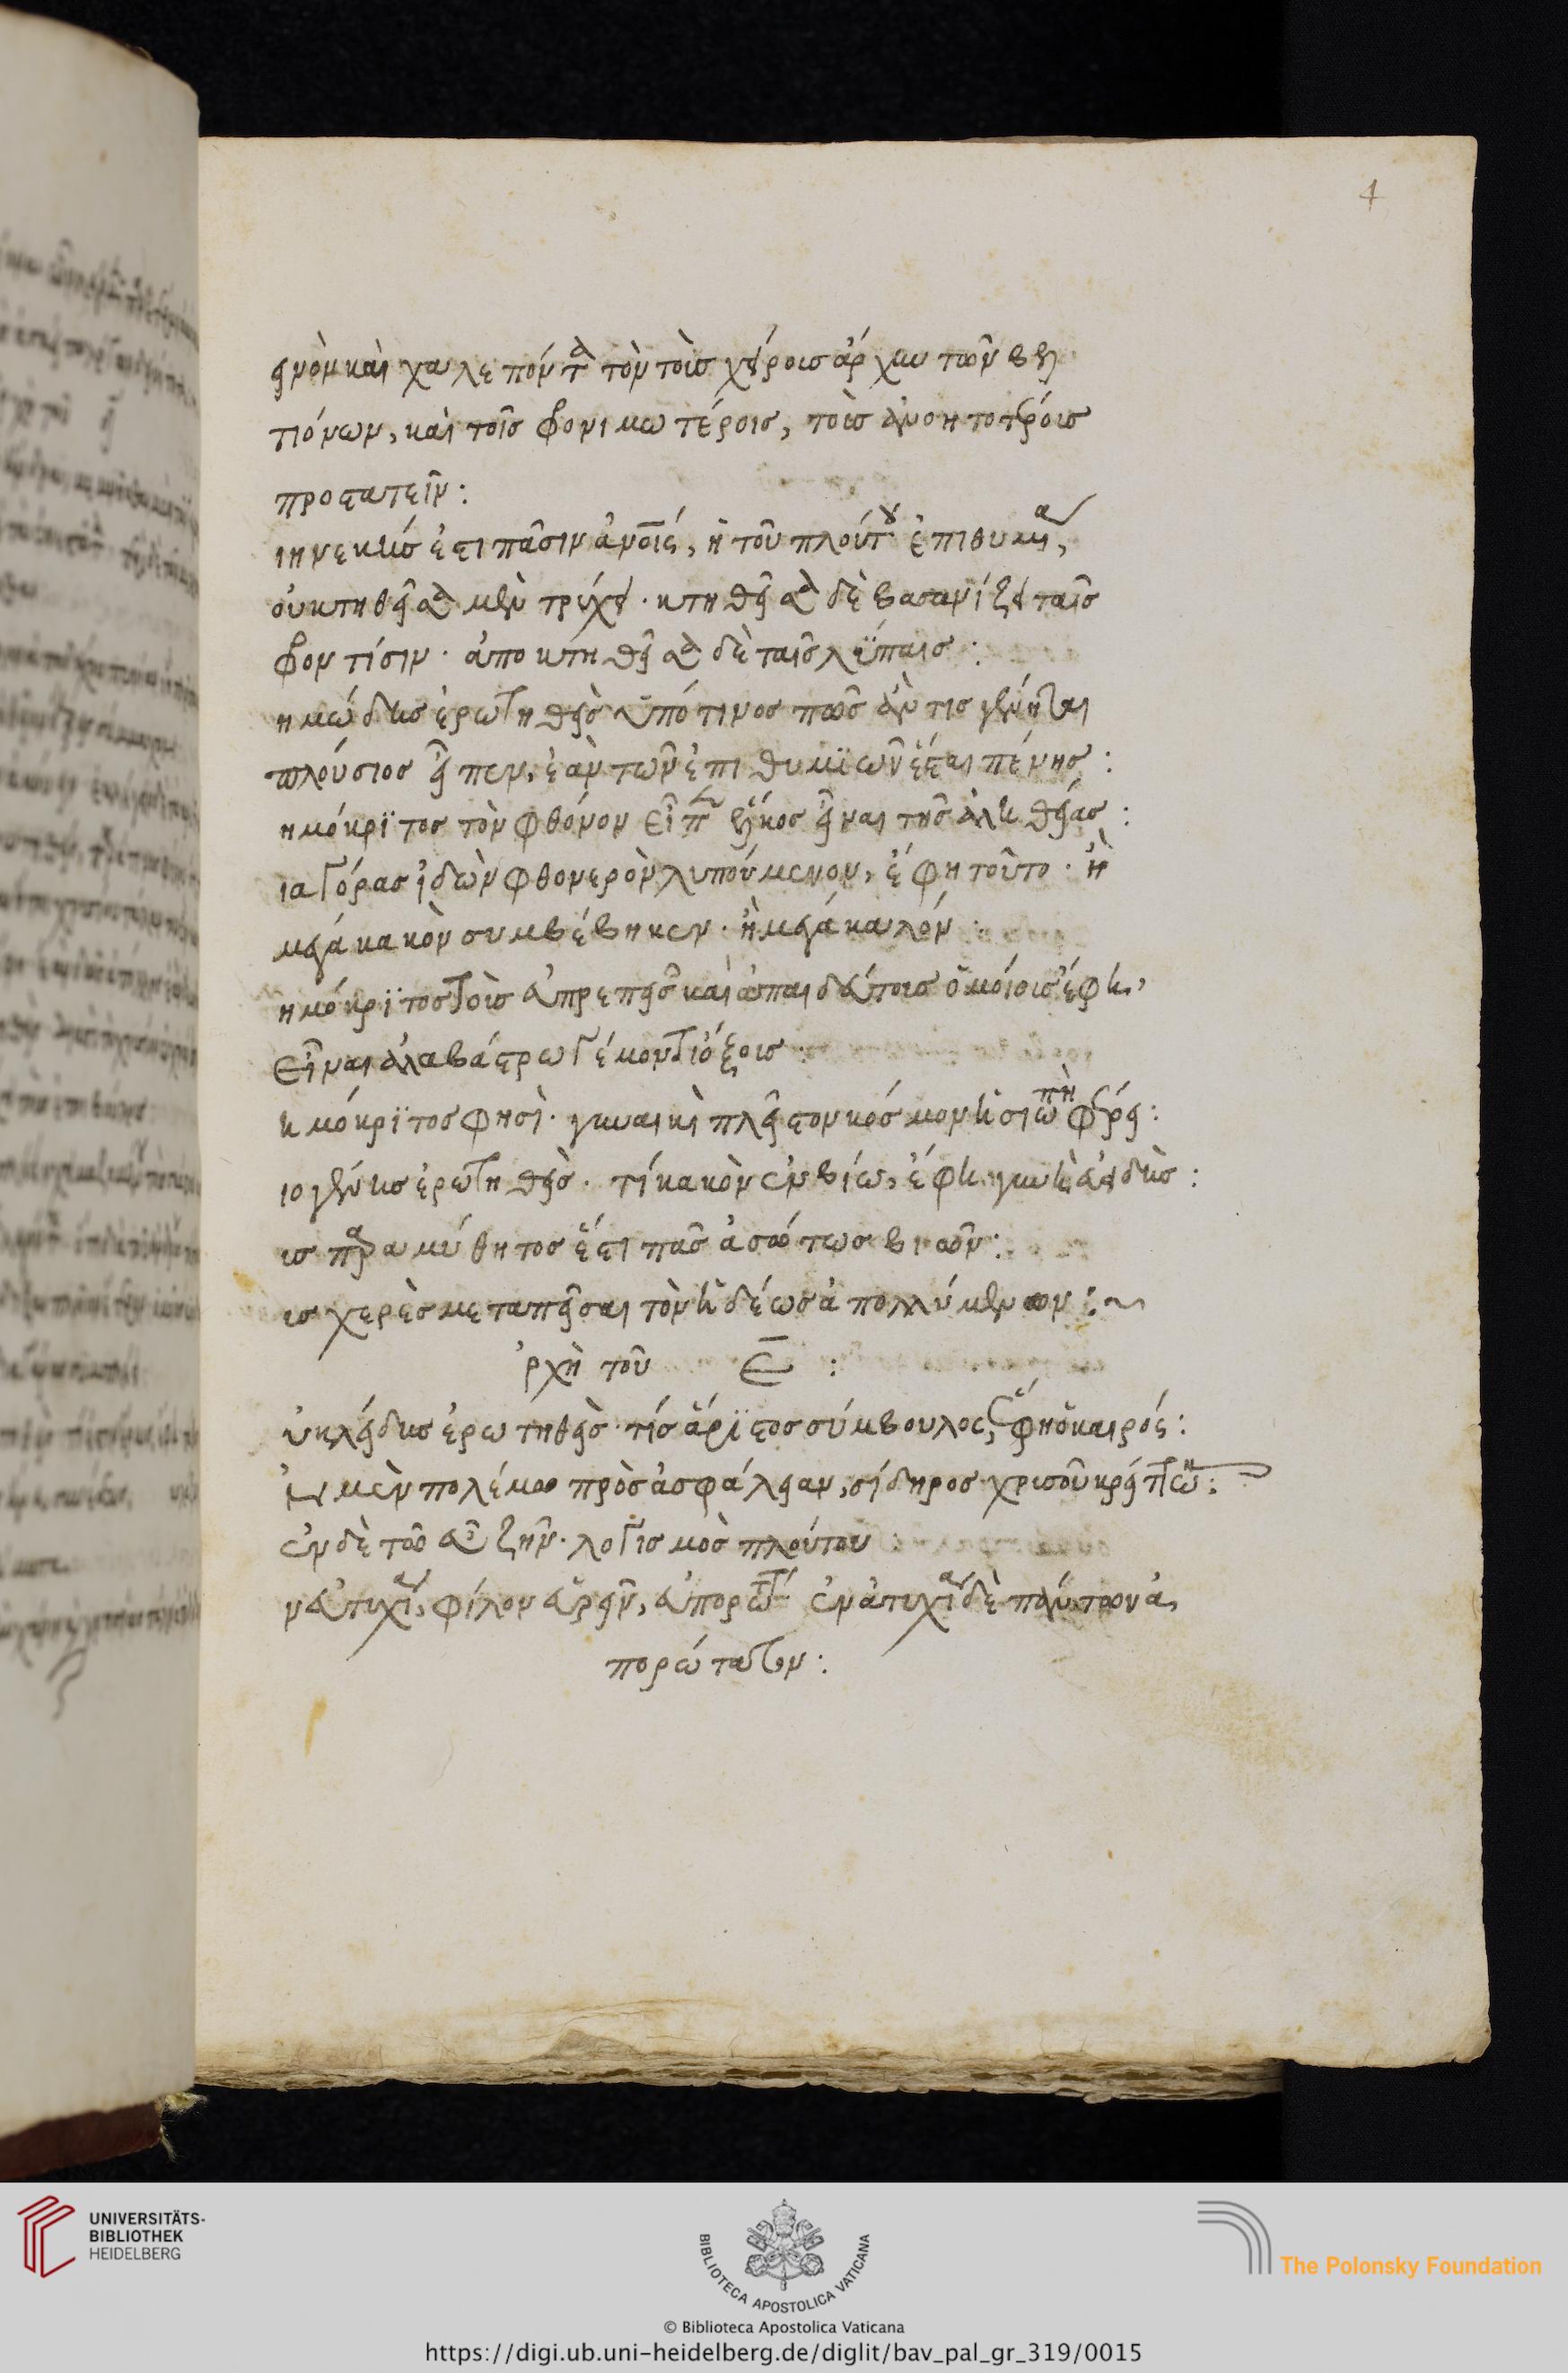 4
εινὸν καὶ χαλεπόν τὰ τὸν τοὺς χείροις ἄρχειν τῶν βελ
τιόνων, καὶ τοῖς φρονιμωτέροις, τοὺς ἀνοητοτέροις
προστατεῖν:
ιηνεκὴς ἐστι πᾶσιν ἀνοῖς, ἡ τοῦ πλούτου ἐπιθυμία,
οὐ κτηθεῖσα μὲν τρύχει· κτηθεῖσα δὲ βασανίζει ταῖς
φροντίσιν· ἀποκτηθεῖσα δὲ ταῖς λύπαις:
ημώδης ἐρωτηθεὶς ὑπό τινος πῶς ἄν τις γένηται
πλούσιος εἶπεν, ἐὰν τῶν ἐπιθυμϊῶν ἔσται πένης:
ημόκρϊτος τὸν φθόνον εἶπεν ἕλκος εἶναι τῆς ἀληθείας:
ιαγόρας ἰδὼν φθονερὸν λυπούμενον, ἔφη τοῦτο· ἢ
μέγα κακὸν συμβέβηκεν· ἢ μέγα καλόν:
ημόκρϊτος τοὺς ἀπρεπεῖς καὶ ἀπαιδεύτοις ὁμοίοις ἔφη,
εἶναι ἀλαβάστρω γέμοντι ὄξοις:
ημόκρϊτος φησὶ· γυναικὶ πλεῖστον κόσμον ἡ σιωπὴ φέρει:
ιογένης ἐρωτηθεὶς· τί κακὸν ἐν βίω, ἔφη γυνὴ ἀειδὴς:
ισπαραμύθητος ἔστι πᾶς ἀσώτως βιῶν:
ισχερὲς μεταπεῖσαι τὸν ἡδέως ἀπολλύμενον:~
ἀρχὴ τοῦ Ε:
ὐκλείδης ἐρωτηθεὶς· τίς ἄριστος σύμβουλος, ἔφη ὁ καιρός:
ἐν μὲν πολέμω πρὸς ἀσφάλειαν, σίδηρος χρισοῦ κρείττων:
ἐν δὲ τῶ εὖ ζῆν· λογισμὸς πλούτου:
ν εὐτυχία, φίλον εὑρεῖν, εὐπορώτατον· ἐν ἀτυχία δὲ πάντων ἀ,
πορώτατον:
UNIVERSITÄTS-
BIBLIOTHEK
HEIDELBERG
BIBLIOTECA APOSTOLICA VATICANA
The Polonsky Foundation
© Biblioteca Apostolica Vaticana
https://digi.ub.uni-heidelberg.de/diglit/bav_pal_gr_319/0015